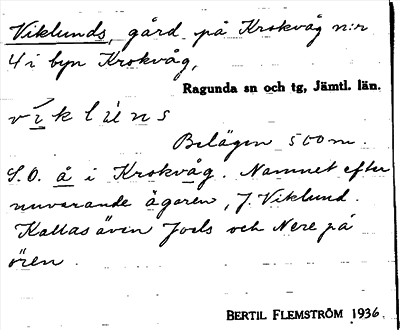 Viklunds, gård på Krokvåg n:r
4 i byn Krokvåg,
Ragunda sn och tg, Jämtl. län.
viklùns
Belägen 500 m.
S.O. å i Krokvåg. Namnet efter
nuvarande ägaren, J. Viklund.
Kallas även Joels och Nere på
ören.
BERTIL FLEMSTRÖM 1936.